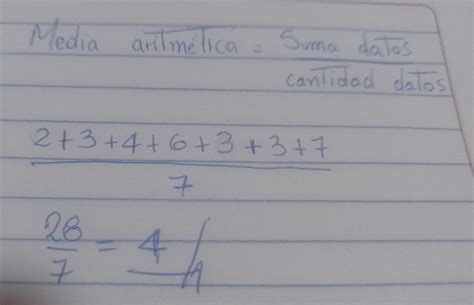 Media aritmética = Suma datos
cantidad datos
2+3+4+6+3+3+7
7
28
7 = 4